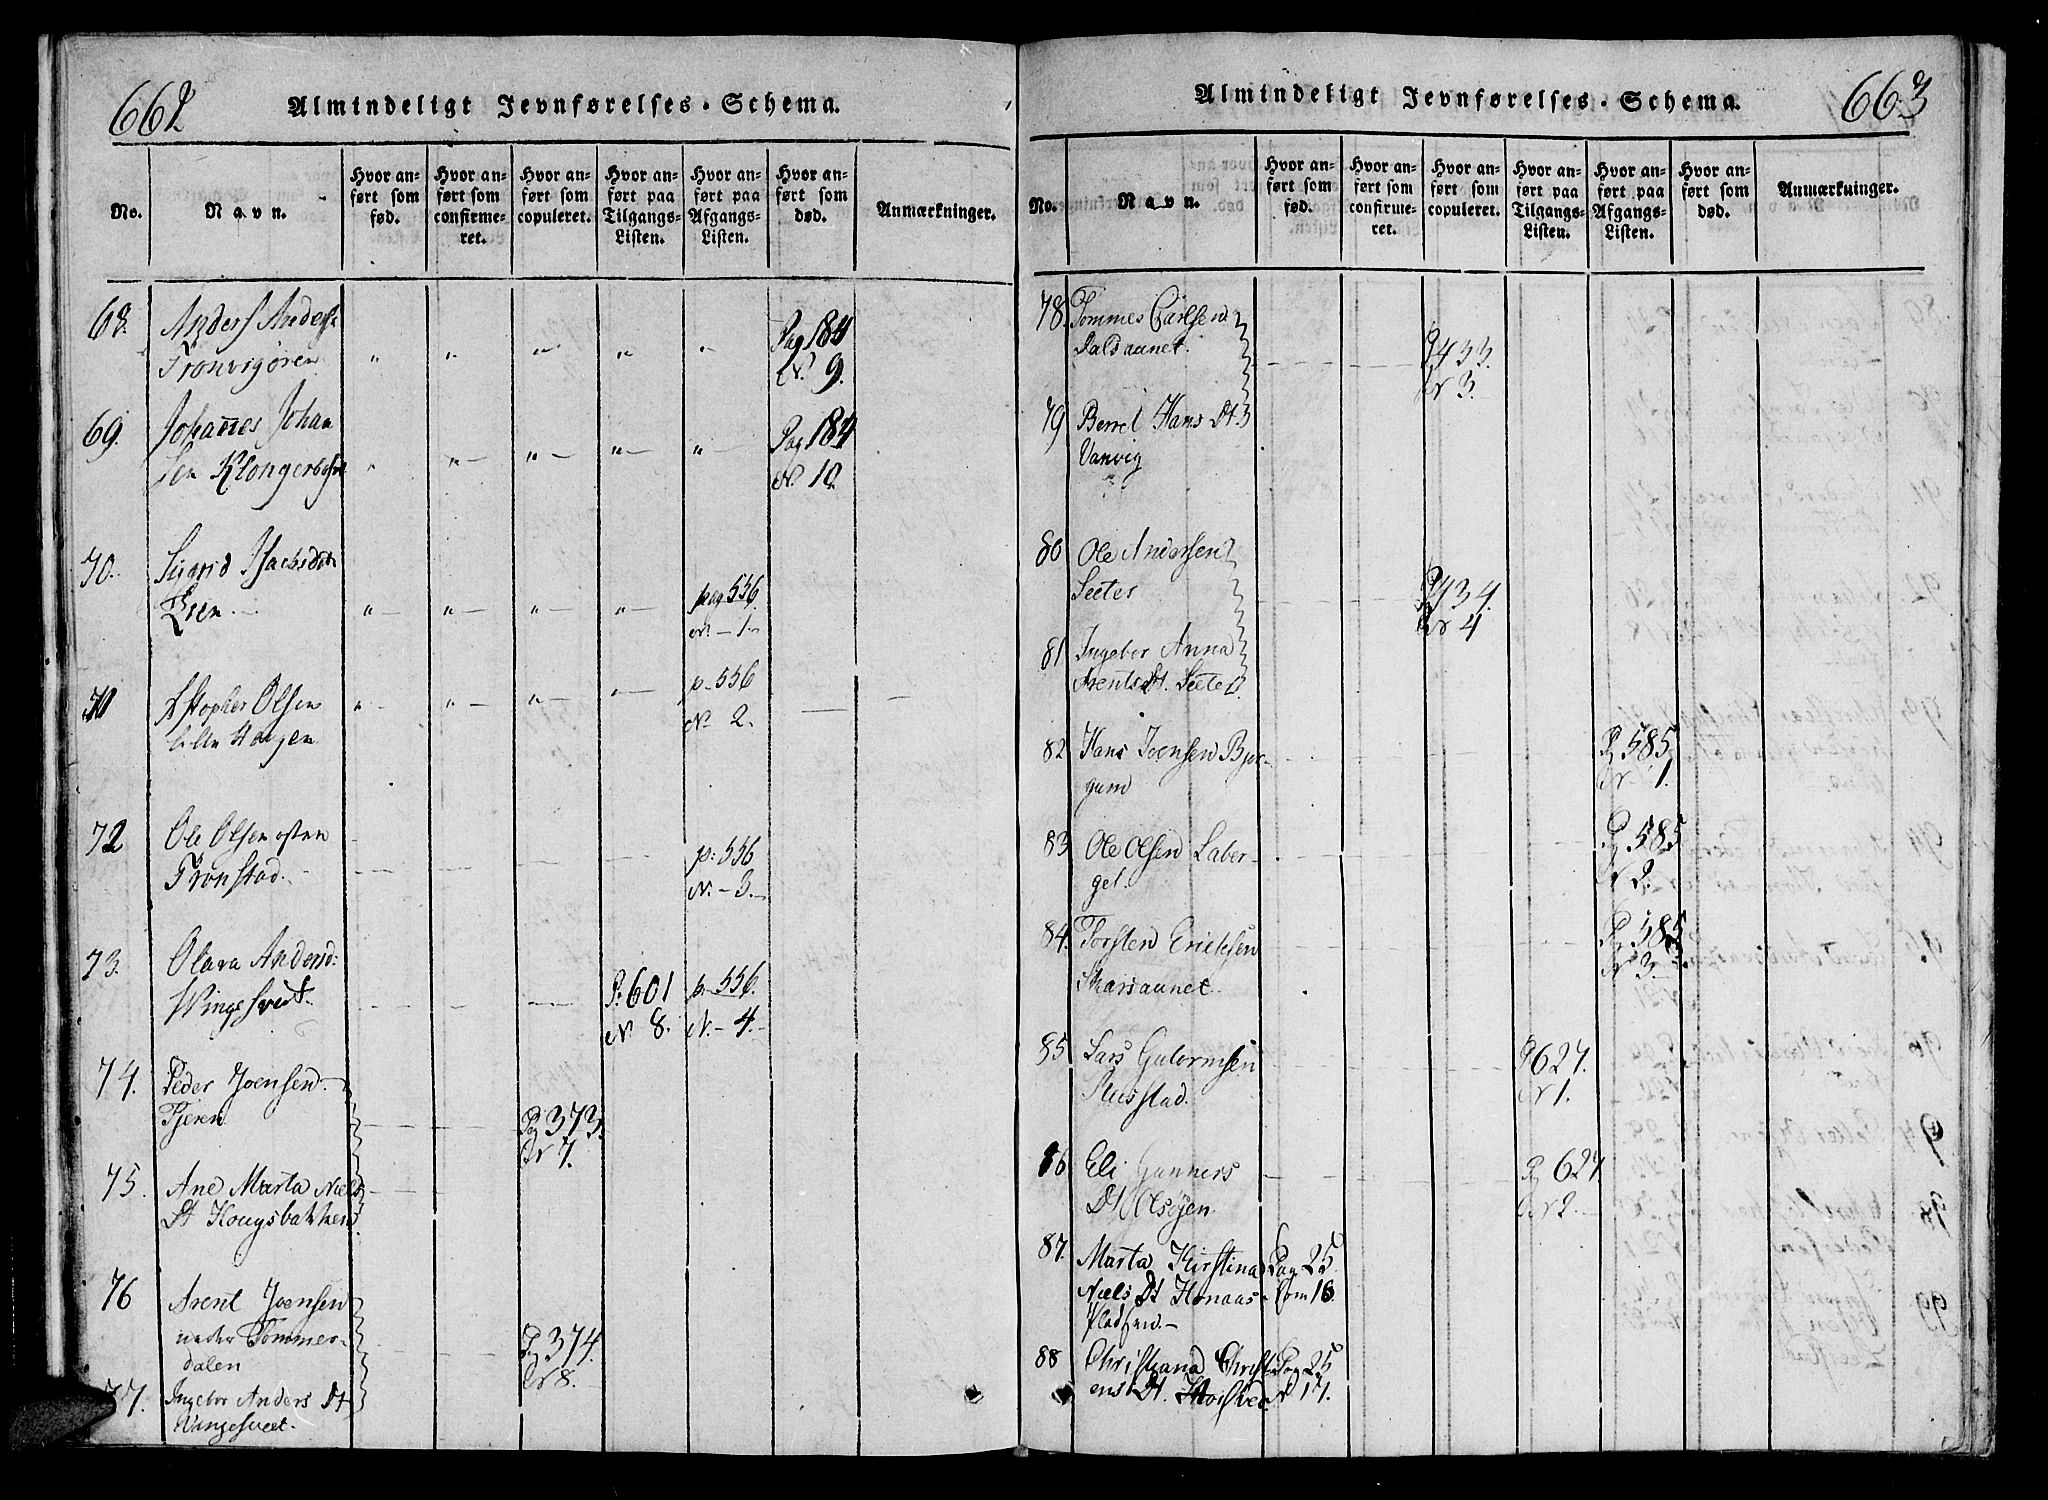 662
Almindeligt Jevnførelses-Schema.
No.
Navn.
Hvor anført som fød.
Hvor anført som confirmeret.
Hvor anført som copuleret.
Hvor anført paa Tilgangs-Listen.
Hvor anført paa Afgangs-Listen.
Hvor anført som død.
Anmærkninger.
68. Anders Anders
Tronvigøren
Pag 184
N. 9.
69. Johannes Johan
sen
Pag 184
N. 10.
70. Sigrid Isachsdtr
pag 556
N. 1.
71
Olsen
p. 556
N. 2.
72 Ole Olsen østen
Tronstad.
p: 556
N. 3.
73. Olava Andersd:
Wingesveet.
P. 601
N. 8.
p. 556.
N. 4.
74. Peder Joensen
Tjeren
Pag 373.
Nr 7.
75. Ane Marta Niels
Dt Hougsbakken
76 Arent Joensen
neder Tommer-
dalen
Pag 374.
Nr 8.
77. Ingebor Anders Dt
Wingesveet.
663
Almindeligt Jevnførelses-Schema.
No.
Navn.
Hvor anført som fød.
Hvor anført som confirmeret.
Hvor anført som copuleret.
Hvor anført paa Tilgangs-Listen.
Hvor anført paa Afgangs-Listen.
Hvor anført som død.
Anmærkninger.
78. Tommes Carlsen
Dalsaunet.
P 433.
Nr 3.
79 Berrel Hans Dt
Vanvig
80 Ole Andersen
Seeter
P 434.
Nr 4
81 Ingebor Anna
Arents Dt. Seeter
82 Hans Joensen Bjør-
gum
Pag 585
Nr 1.
83 Ole Olsen Laber-
get.
Pag 585
Nr 2.
84. Torsten Ericksen
Skarsaunet.
Pag 585
Nr 3.
85 Lars Gutormsen
Russtad.
P 627.
Nr 1.
86 Eli Gunners
Dt Olsøyen.
Pag 627.
Nr 2.
87. Marta Kirstina
Niels Dt Honaas
Pladsen.
Pag 25
Nom 16.
88 Christiana Christi
ens Dt.
Pag 25
N 17.